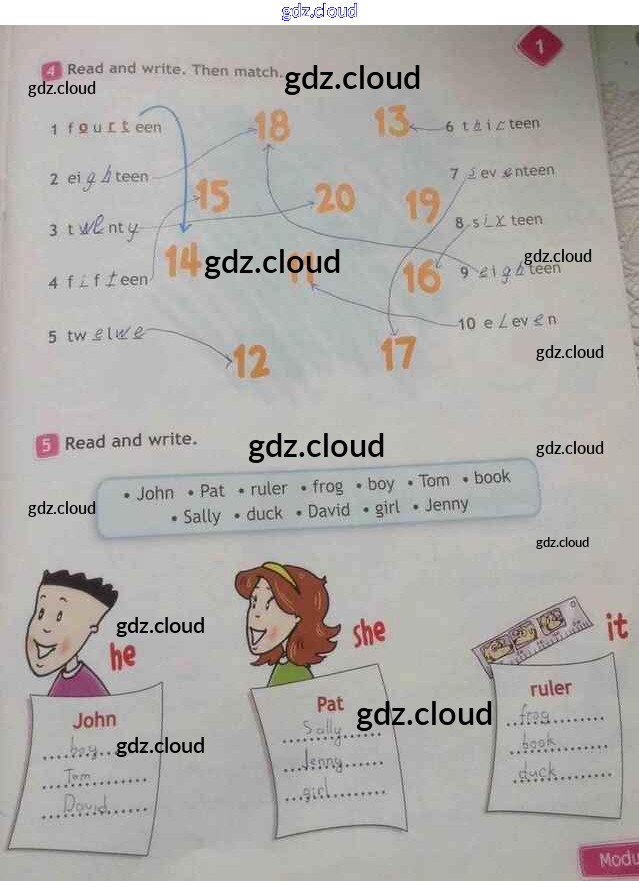 gdz.cloud
1
4 Read and write. Then match.
gdz.cloud
gdz.cloud
1 fourteen
18
13
6 thirteen
2 eighteen
7 seventeen
15
20
19
3 twenty
8 sixteen
14
gdz.cloud
11
16
gdz.cloud
9 eighteen
4 fifteen
10 eleven
5 twelwe
12
17
gdz.cloud
5 Read and write.
gdz.cloud
gdz.cloud
• John • Pat • ruler • frog • boy • Tom • book
• Sally • duck • David • girl • Jenny
gdz.cloud
gdz.cloud
gdz.cloud
he
she
it
John
Pat
ruler
gdz.cloud
boy
Tom
David
gdz.cloud
Sally
Jenny
girl
frog
book
duck
Modu